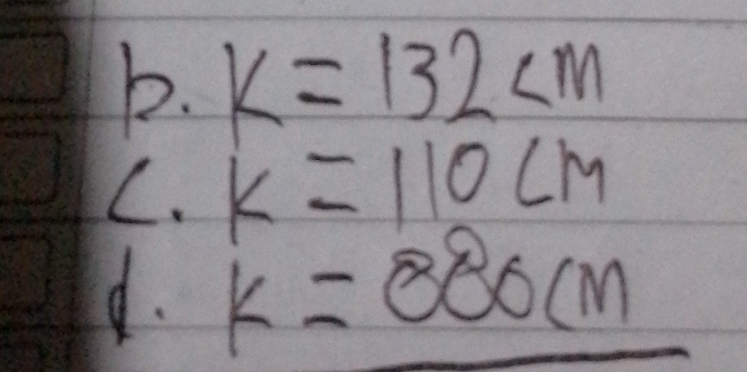 b. K = 132 cm
c. K = 110 cm
d. K = 880 cm